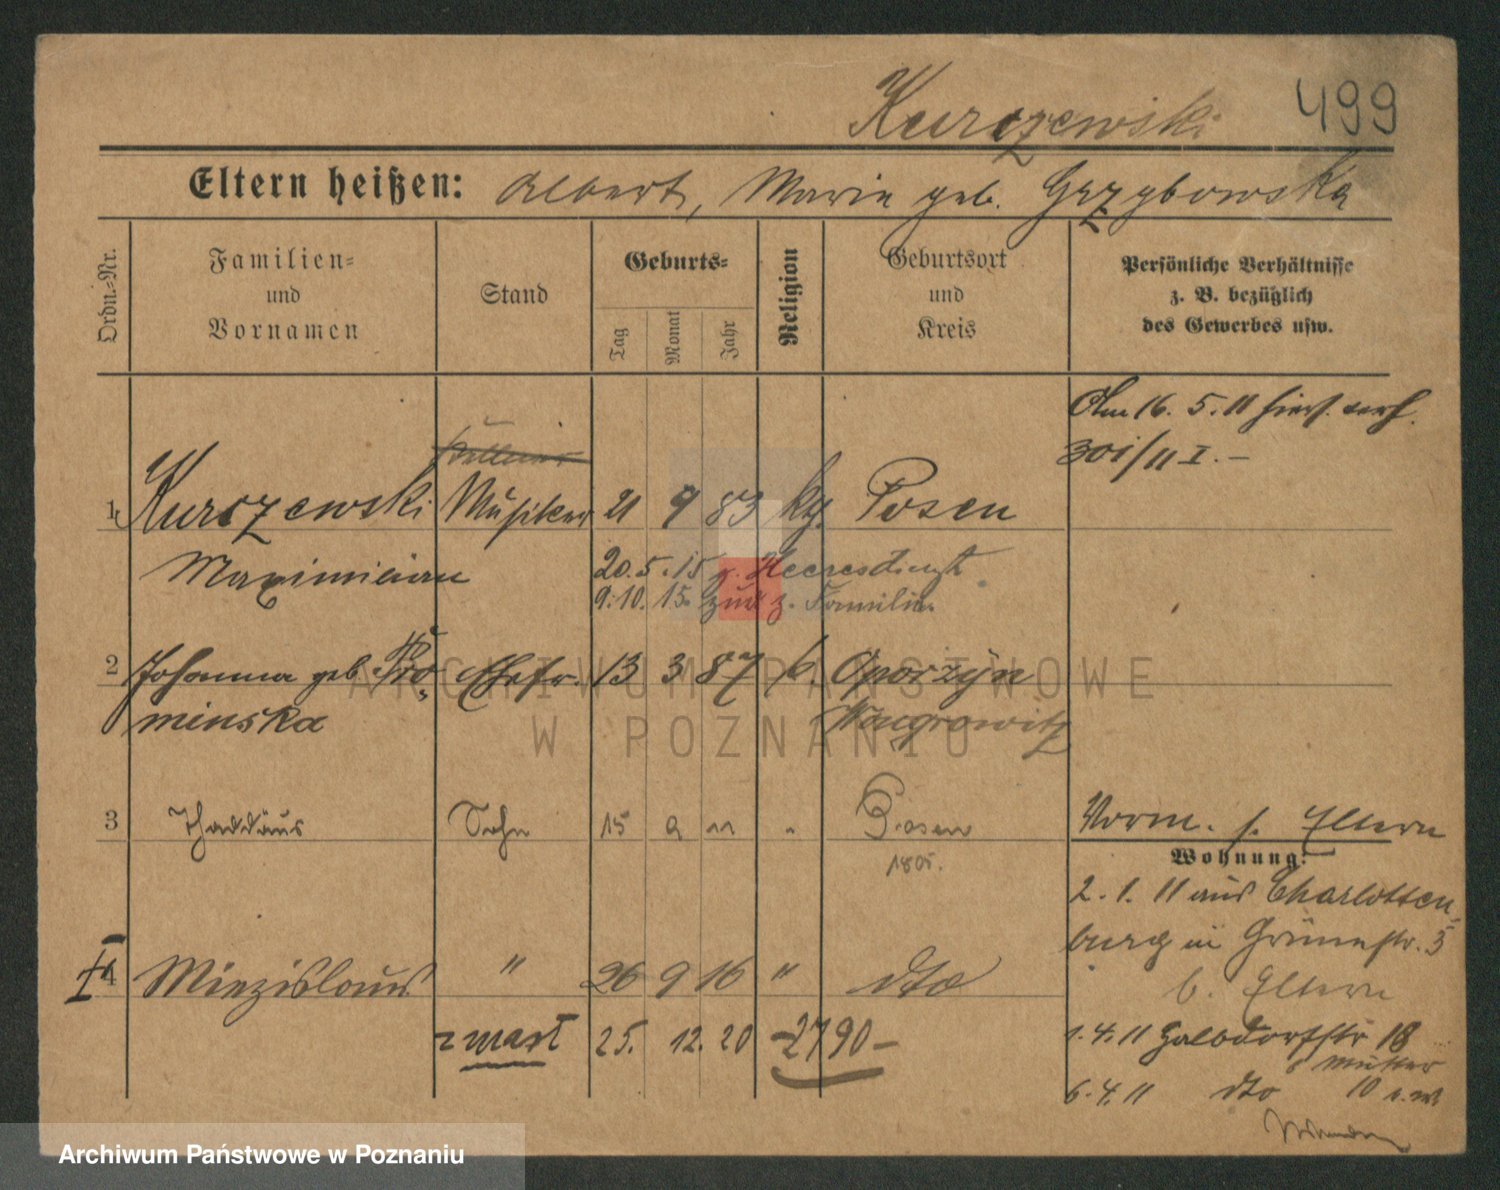 Kurczewski 499
Eltern heißen: Albert, Marie geb. Grzybowska
Ordn.-Nr.
Familien-
und
Vornamen
Stand
Geburts-
Tag
Monat
Jahr
Religion
Geburtsort
und
Kreis
Persönliche Verhältnisse
z. B. bezüglich
des Gewerbes usw.
Am 16. 5. 11 hiers. verh.
301/11 I. —
1 Kurczewski Musiker 21 9 83 kth. Posen
Maximilian
20. 5. 15 z. Heeresdienst
9. 10. 15. zur z. Familie
2 Johanna geb. Pro- Ehefr. 13 3 87 k. Oporzyn
minska Wongrowitz
3 Thaddäus Sohn 15 9 11 " Posen
1805.
Vorm. s. Eltern
Wohnung:
2. 1. 11 aus Charlotten-
burg in Grünestr. 5
b. Eltern
4 Miezislaus " 26 9 16 " dto
zmarł 25. 12. 20 -2790-
1. 4. 11 Halbdorfstr 18
b Mutter
6. 4. 11 dto 10
ARCHIWUM PAŃSTWOWE
W POZNANIU
Archiwum Państwowe w Poznaniu